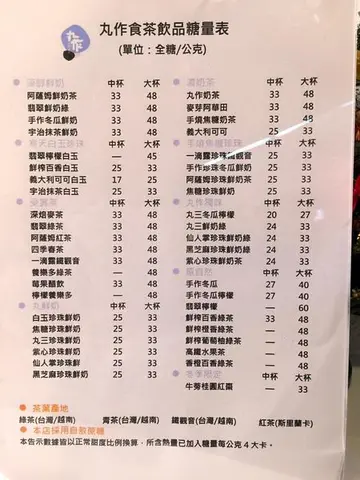 丸作
丸作食茶飲品糖量表
(單位：全糖/公克)
鮮奶 中杯 大杯
阿薩姆鮮奶茶 33 48
翡翠鮮奶綠 33 48
手作冬瓜鮮奶 33 48
宇治抹茶鮮奶 33 48
寒天白玉珍珠 中杯 大杯
翡翠檸檬白玉 — 45
鮮榨百香白玉 25 33
義大利可可白玉 17 25
宇治抹茶白玉 25 33
茶 中杯 大杯
深焙麥茶 33 48
翡翠綠茶 33 48
阿薩姆紅茶 33 48
四季春茶 33 48
一滴露鐵觀音 33 48
養樂多綠茶 — 48
莓果醋飲 33 48
檸檬養樂多 — 48
丸鮮奶 中杯 大杯
白玉珍珠鮮奶 25 33
焦糖珍珠鮮奶 25 33
丸三珍珠鮮奶 25 33
紫心珍珠鮮奶 25 33
仙人掌珍珠鮮奶 25 33
黑芝麻珍珠鮮奶 25 33
濃奶茶 中杯 大杯
丸作奶茶 33 48
麥芽阿華田 33 48
手燒焦糖奶茶 33 48
義大利可可 25 33
手燒焦糖珍珠 中杯 大杯
一滴露珍珠鐵觀音 25 33
手作珍珠冬瓜鮮奶 25 33
阿薩姆珍珠鮮奶茶 25 33
焦糖珍珠鮮奶 25 33
丸作獨味 中杯 大杯
丸三冬瓜檸檬 20 27
丸三鮮奶綠 24 33
仙人掌珍珠鮮奶綠 24 33
黑芝麻珍珠鮮奶綠 24 33
紫心珍珠鮮奶茶 25 33
原自然 中杯 大杯
手作冬瓜 27 40
手作冬瓜檸檬 27 40
翡翠檸檬 — 60
鮮榨百香綠茶 33 48
鮮榨橙香綠茶 — 48
鮮榨葡萄柚綠茶 — 48
高纖水果茶 — 48
香橙百香綠茶 — 48
冬季限定 中杯 大杯
牛蒡桂圓紅棗 — 33
茶葉產地
綠茶(台灣/越南) 青茶(台灣/越南) 鐵觀音(台灣/越南) 紅茶(斯里蘭卡)
本店採用自熬蔗糖
本告示數據皆以正常甜度比例換算，所含熱量已加入糖量每公克 4 大卡。